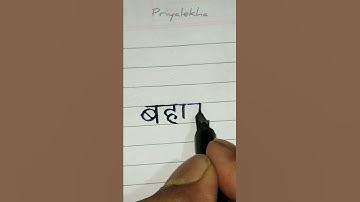 Priyalekha
बहा